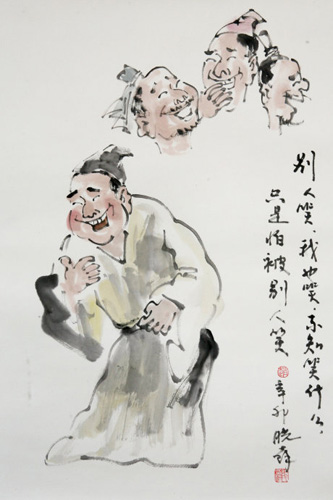 别人笑,我也笑,不知笑什么,
只是怕被别人笑
辛卯 晓